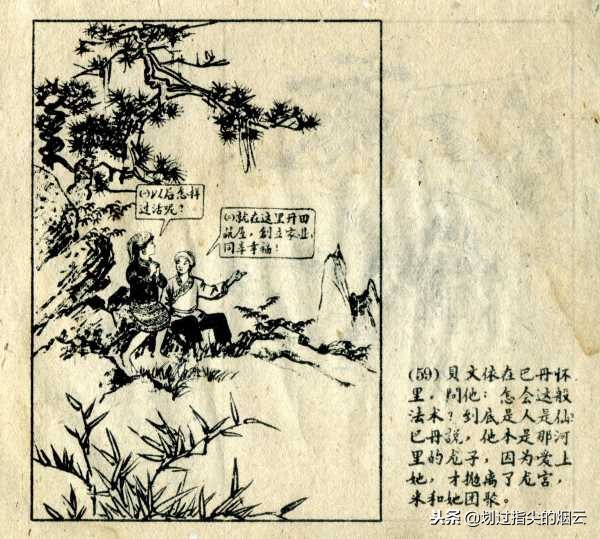 (一)以后怎样
过活呢？
(二)就在这里开田
筑屋，創立家业，
同享幸福！
(59) 貝文依在巴丹怀
里，問他：怎会这般
法术？到底是人是仙
巴丹說，他本是那河
里的龙子，因为爱上
她，才拋离了龙宫，
来和她团聚。
头条 @划过指尖的烟云